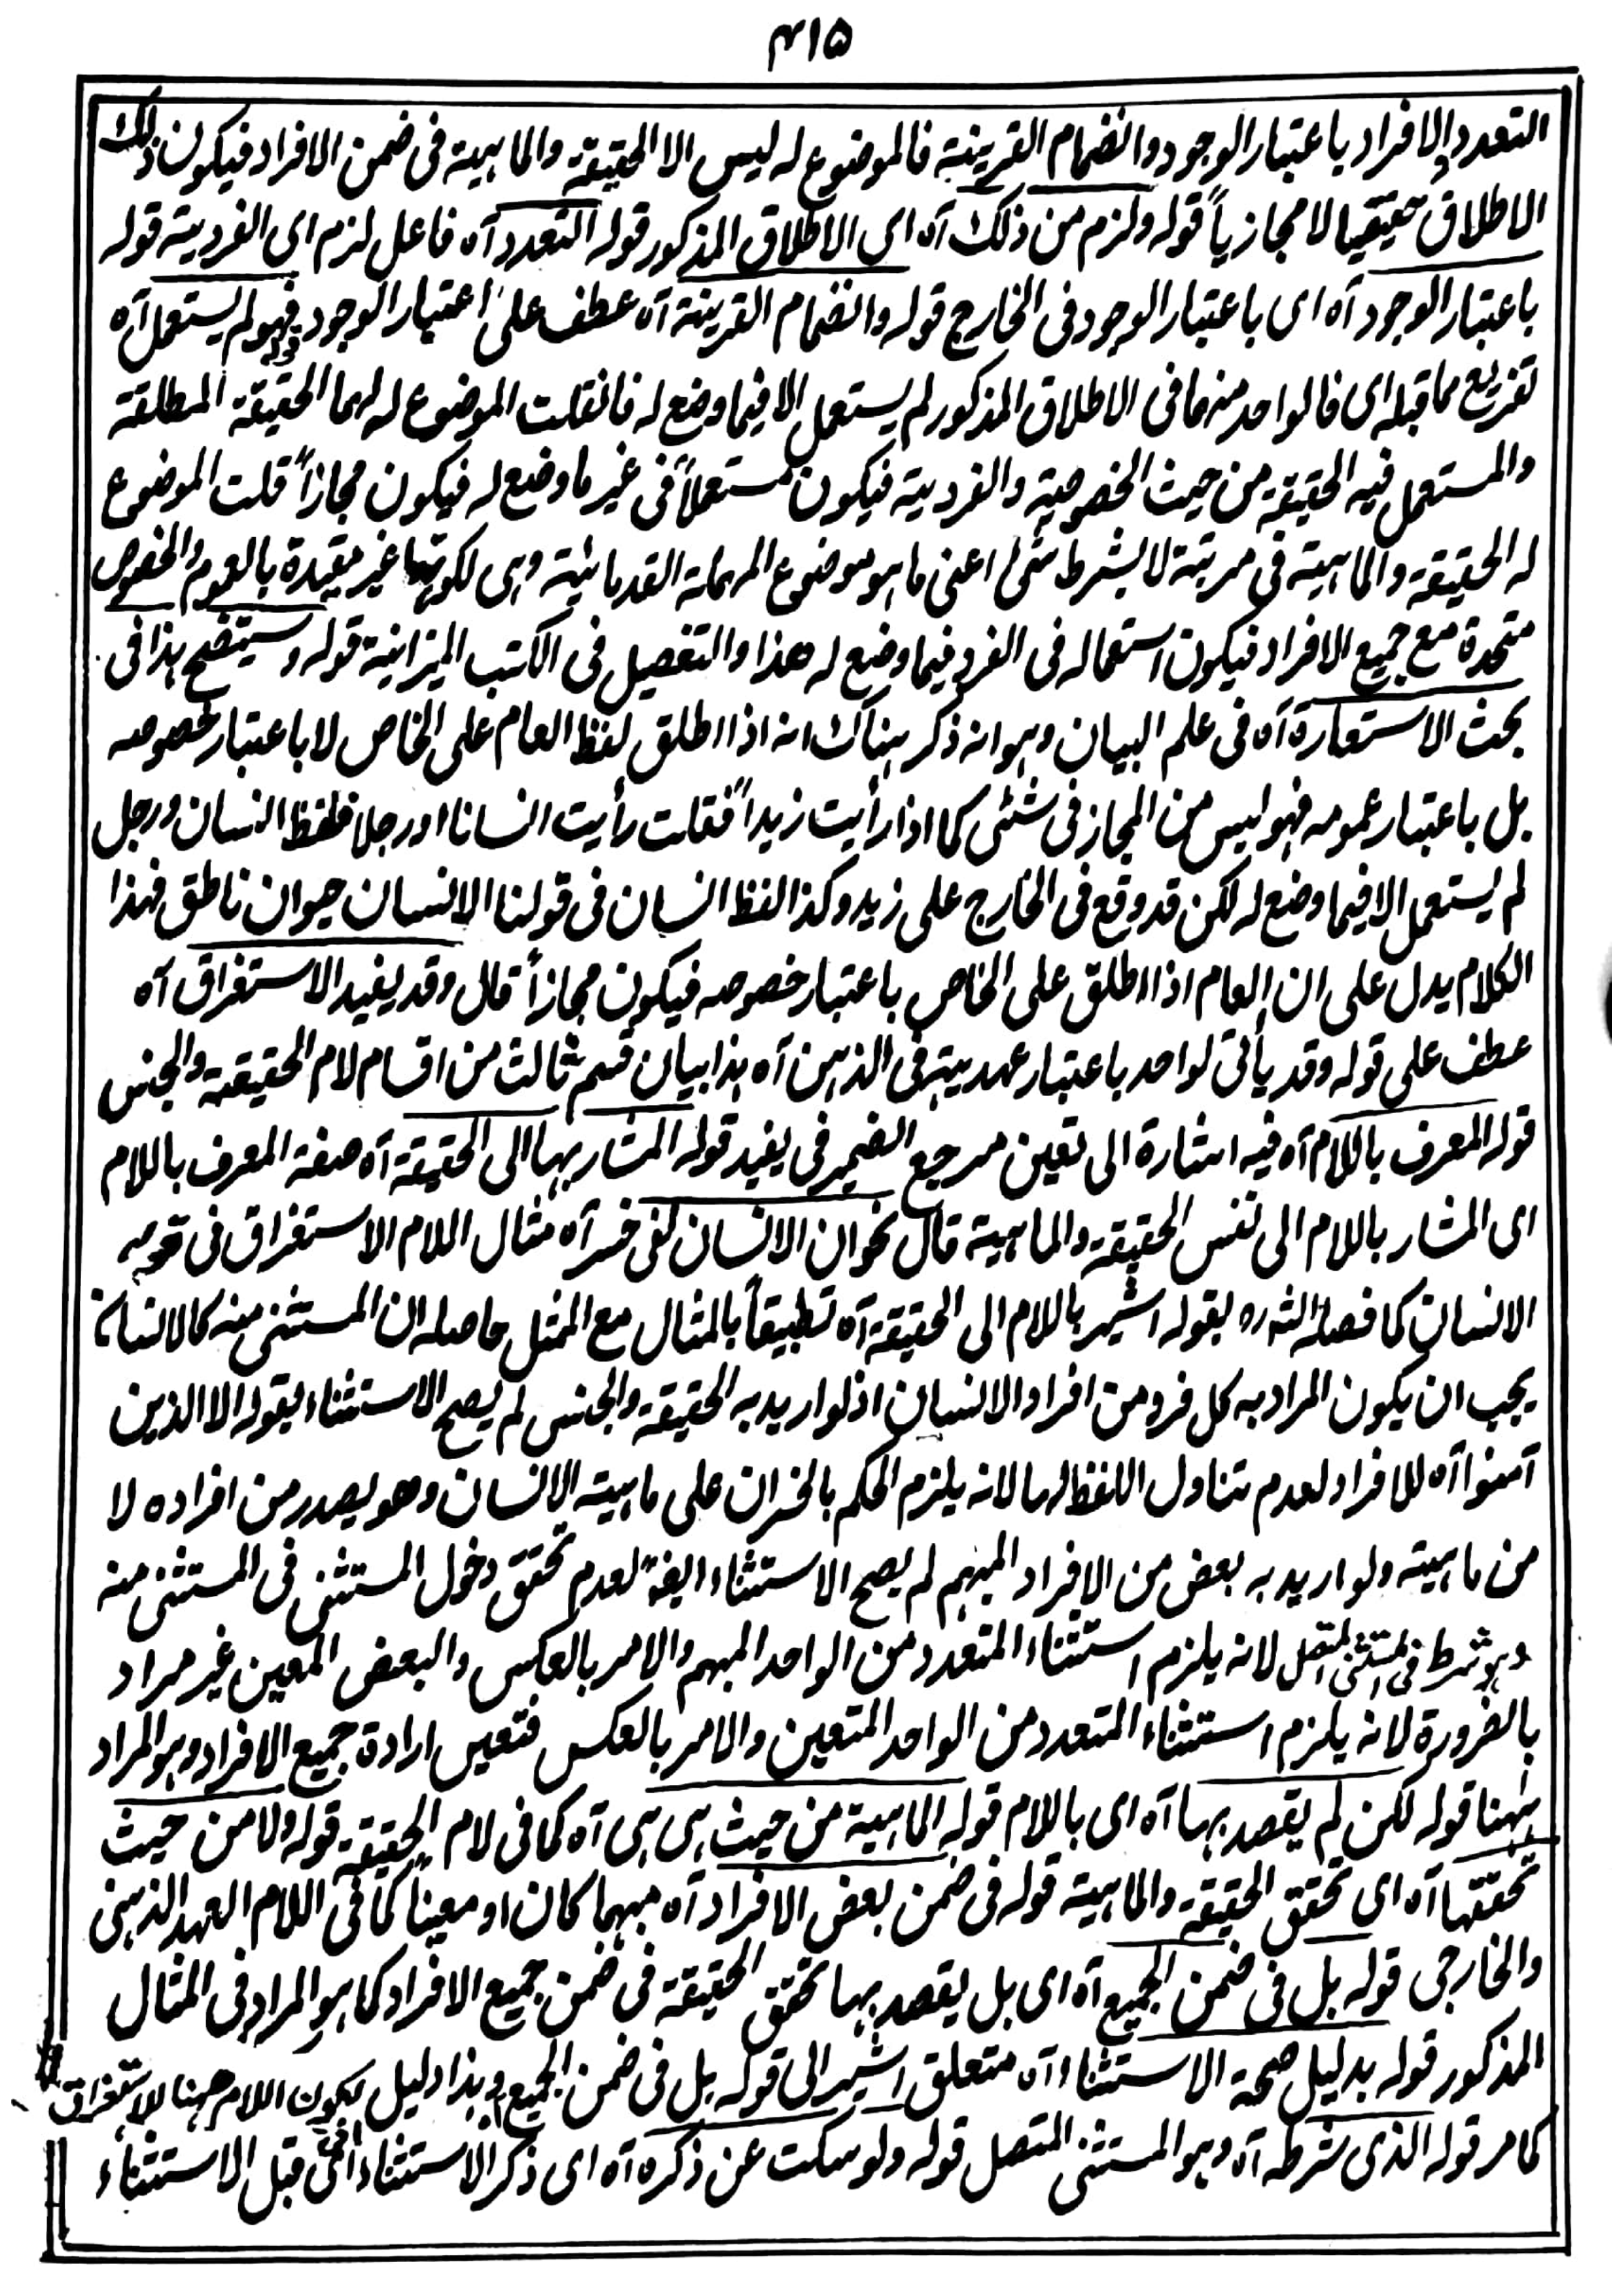 ۴۱۵
التعدد والافراد باعتبار الوجود وانضمام القرينة فالموضوع له ليس الا الحقيقة والماهية فى ضمن الافراد فيكون ذلك
الاطلاق حقيقيا لا مجازياً قوله ولزم من ذلك آه اى الاطلاق المذكور قوله التعدد آه فاعل لزم اى الفردية قوله
باعتبار الوجود آه اى باعتبار الوجود فى الخارج قوله وانضمام القرينة آه عطف على اعتبار الوجود قوله فهو لم يستعمل آه
تفريع مما قبله اى فالواحد منهما فى الاطلاق المذكور لم يستعمل الا فيما وضع له فانقلت الموضوع له لهما الحقيقة المطلقة
والمستعمل فيه الحقيقة من حيث الخصوصية والفردية فيكون مستعملاً فى غير ما وضع له فيكون مجازاً قلت الموضوع
له الحقيقة والماهية فى مرتبة لا بشرط شئ اعنى ما هو موضوع المهملة القدمائية وهى لكونها غير مقيدة بالعموم والخصوص
متحدة مع جميع الافراد فيكون استعماله فى الفرد فيما وضع له هذا والتفصيل فى الكتب الميزانية قوله وسيتضح هذا فى
بحث الاستعارة آه فى علم البيان وهو انه ذكر هناك انه اذا اطلق لفظ العام على الخاص لا باعتبار خصوصه
بل باعتبار عمومه فهو ليس من المجاز فى شئى كما اذا رأيت زيداً فقلت رأيت انسانا او رجلا فلفظ انسان ورجل
لم يستعمل الا فيما وضع له لكن قد وقع فى الخارج على زيد وكذا لفظ انسان فى قولنا الانسان حيوان ناطق فهذا
الكلام يدل على ان العام اذا اطلق على الخاص باعتبار خصوصه فيكون مجازاً قال وقد يفيد الاستغراق آه
عطف على قوله وقد يأتى لواحد باعتبار عهديته فى الذهن آه هذا بيان قسم ثالث من اقسام لام الحقيقة والجنس
قوله المعرف باللام آه فيه اشارة الى تعين مرجع الضمير فى يفيد قوله المشار بها الى الحقيقة آه صفة المعرف باللام
اى المشار باللام الى نفس الحقيقة والماهية قال نحو ان الانسان لفى خسر آه مثال اللام الاستغراق فى قوله
الانسان كما فصله الشه ره بقوله اشير باللام الى الحقيقة آه تطبيقاً بالمثال مع الممثل حاصله ان المستثنى منه كالانسان
يجب ان يكون المراد به كل فرد من افراد الانسان اذ لو اريد به الحقيقة والجنس لم يصح الاستثناء بقوله الا الذين
آمنوا آه للافراد لعدم تناول اللفظ لها لانه يلزم الحكم بالخسران على ماهية الانسان وهو يصدر من افراده لا
من ماهيته ولو اريد به بعض من الافراد المبهم لم يصح الاستثناء ايضا لعدم تحقق دخول المستثنى فى المستثنى منه
وهو شرط فى المستثنى المتصل لانه يلزم استثناء المتعدد من الواحد المبهم والامر بالعكس والبعض المعين غير مراد
بالضرورة لانه يلزم استثناء المتعدد من الواحد المتعين والامر بالعكس فتعين ارادة جميع الافراد وهو المراد
ههنا قوله لكن لم يقصد بها آه اى باللام قوله الماهية من حيث هى هى آه كما فى لام الحقيقة قوله ولا من حيث
تحققها آه اى تحقق الحقيقة والماهية قوله فى ضمن بعض الافراد آه مبهما كان او معيناً كما فى اللام العهد الذهنى
والخارجى قوله بل فى ضمن الجميع آه اى بل يقصد بها تحقق الحقيقة فى ضمن جميع الافراد كما هو المراد فى المثال
المذكور قوله بدليل صحة الاستثناء آه متعلق اشير الى قوله بل فى ضمن الجميع وهذا دليل لكون اللام ههنا للاستغراق
كما مر قوله الذى شرطه آه وهو المستثنى المتصل قوله ولو سكت عن ذكره آه اى ذكر الاستثناء قبل الاستثناء